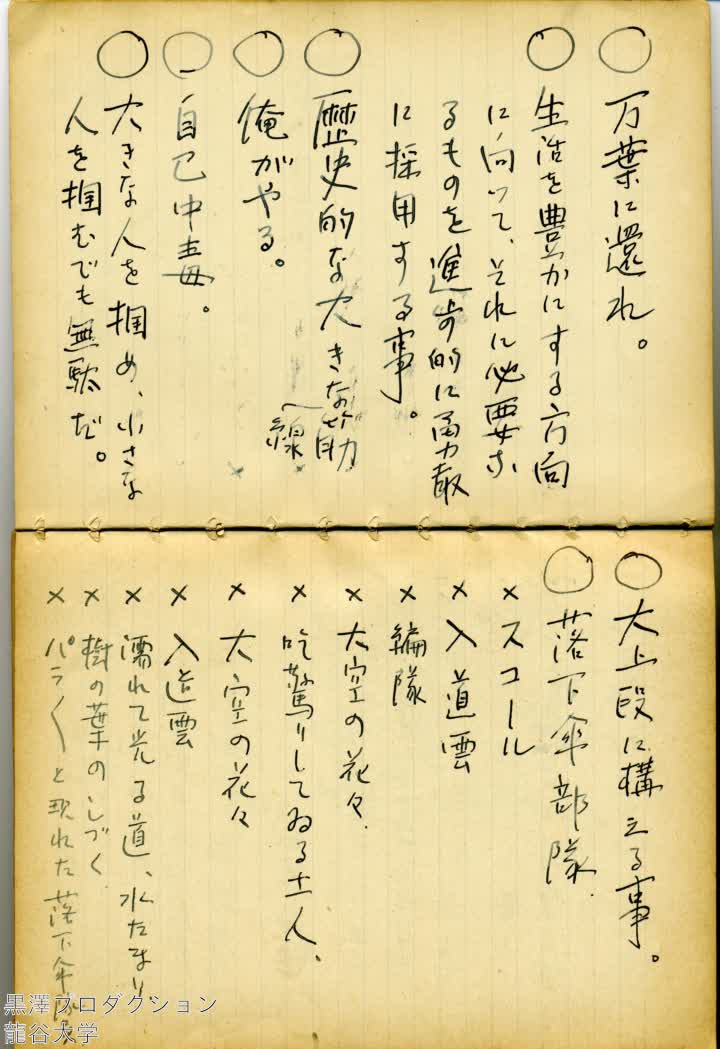 ○ 万葉に還れ。
○ 生活を豊かにする方向
に向って、それに必要な
るものを進歩的に勇敢
に採用する事。
○ 歴史的な大きな筋
線
○ 俺がやる。
○ 自己中毒。
○ 大きな人を掴め、小さな
人を掴むでも無駄だ。
○ 大上段に構える事。
○ 落下傘部隊
× スコール
× 入道雲
× 編隊
× 大空の花々
× 吃驚りしてゐる土人、
× 大空の花々
× 入道雲
× 濡れて光る道、水たまり、
× 樹の葉のしづく
× パラ〱と現れた落下傘部隊
黒澤プロダクション
龍谷大学